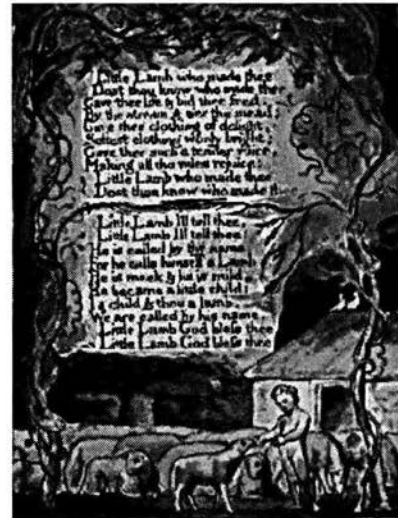 Little Lamb who made thee
Dost thou know who made thee
Gave thee life & bid thee feed.
By the stream & o'er the mead;
Gave thee clothing of delight,
Softest clothing wooly bright;
Gave thee such a tender voice,
Making all the vales rejoice:
Little Lamb who made thee
Dost thou know who made thee
Little Lamb I'll tell thee,
Little Lamb I'll tell thee
He is called by thy name,
For he calls himself a Lamb:
He is meek & he is mild,
He became a little child:
I a child & thou a lamb,
We are called by his name.
Little Lamb God bless thee
Little Lamb God bless thee